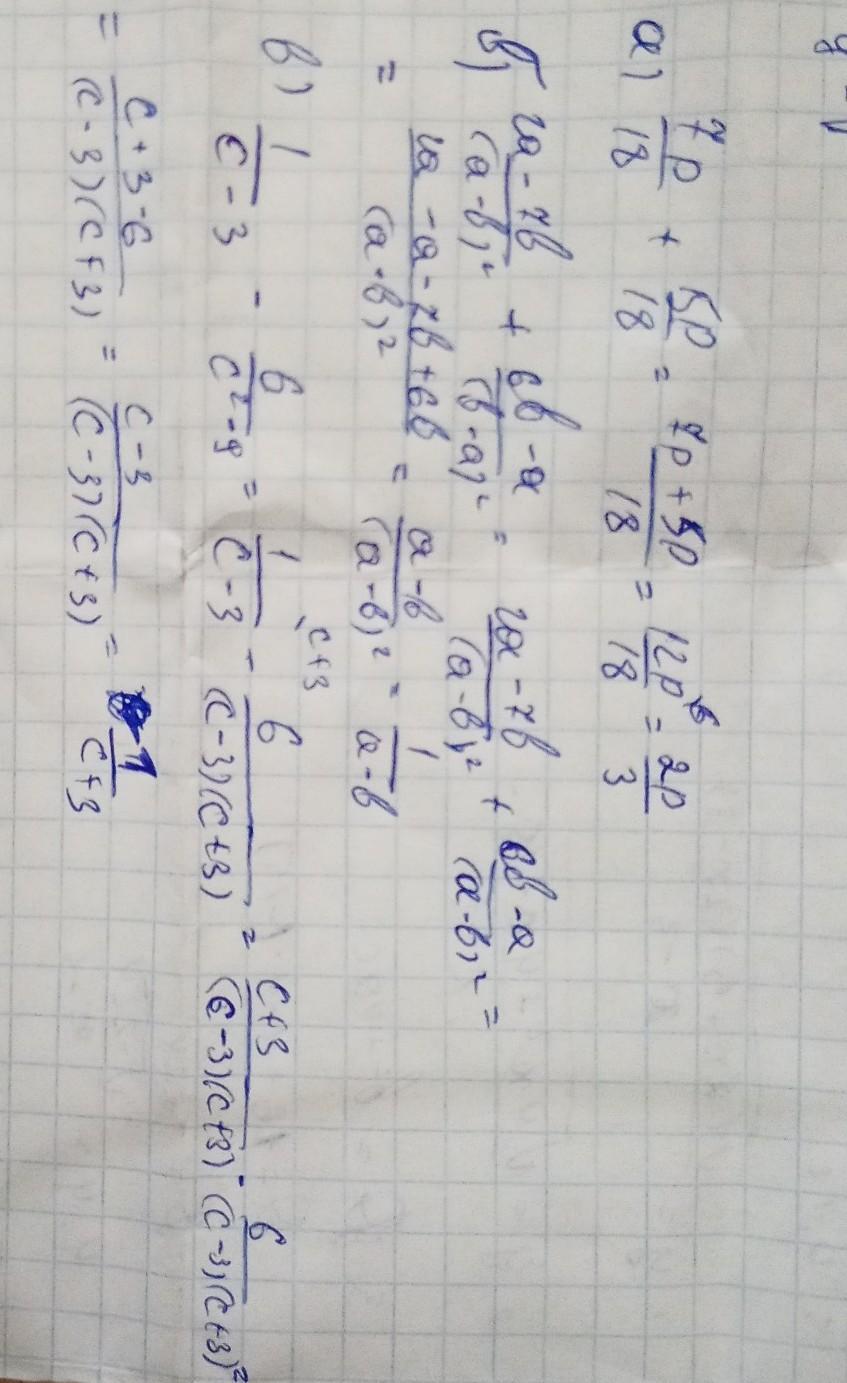 а) 7p/18 + 5p/18 = 7p+5p/18 = 12p/18 ⁶ = 2p/3
б) 2a-7b/(a-b)² + 6b-a/(b-a)² = 2a-7b/(a-b)² + 6b-a/(a-b)² =
= 2a-a-7b+6b/(a-b)² = a-b/(a-b)² = 1/a-b
в) 1/c-3 - 6/c²-9 = 1/c-3 \c+3 - 6/(c-3)(c+3) = c+3/(c-3)(c+3) - 6/(c-3)(c+3) =
= c+3-6/(c-3)(c+3) = c-3/(c-3)(c+3) = 1/c+3